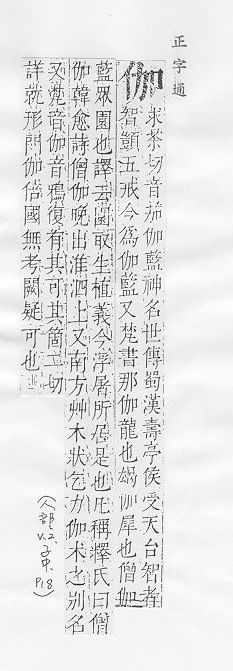 正字通
伽
求茶切音茄伽藍神名世傳蜀漢壽亭侯受天台智者
智顗五戒今為伽藍又梵書那伽龍也朅伽犀也僧伽
藍眾園也譯云園取生植義今浮屠所居是也凡稱釋氏曰僧
伽韓愈詩僧伽晚出淮泗上又南方艸木狀乞力伽朮之別名
又梵音伽音鴉復有其可其箇二切
詳就形門伽倍國無考闕疑可也
(人部
V.2 子中
P18)